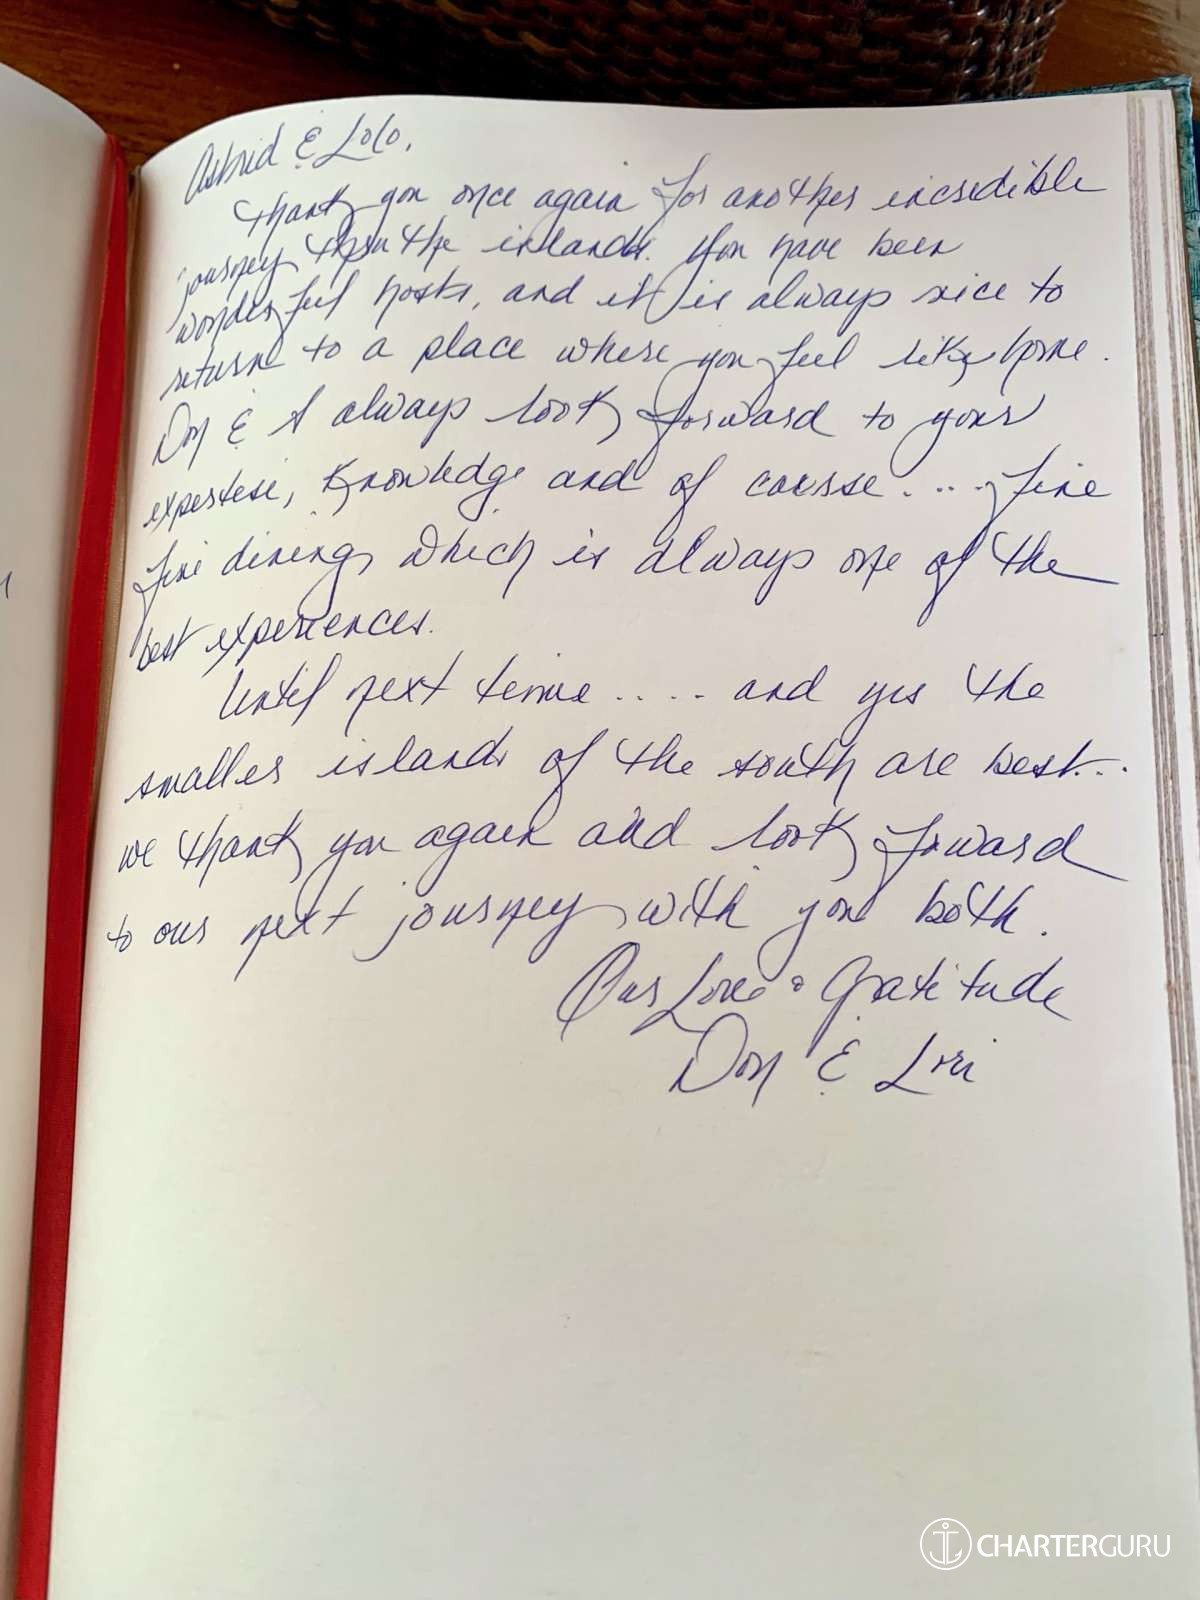 Astrid & Lolo,
Thank you once again for another incredible
journey thru the islands. You have been
wonderful hosts, and it is always nice to
return to a place where you feel like home.
Don & I always look forward to your
expertise, knowledge and of course.... fine
fine dining, which is always one of the
best experiences.
Until next time .... and yes the
smaller islands of the south are best...
we thank you again and look forward
to our next journey with you both.
Our Love & Gratitude
Don & Lori
CHARTERGURU